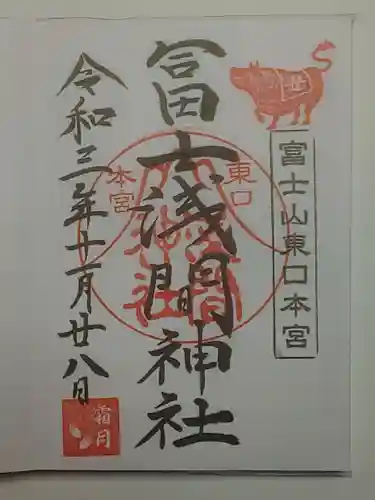 丑
富士山東口本宮
冨士浅間神社
東口
本宮
令和三年十一月廿八日
霜月